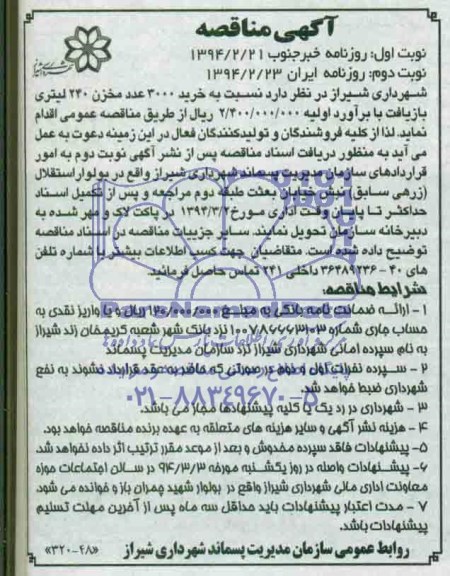 آگهی مناقصه
نوبت اول: روزنامه خبرجنوب ۱۳۹۴/۲/۲۱
نوبت دوم: روزنامه ایران ۱۳۹۴/۲/۲۳
شهرداری شیراز در نظر دارد نسبت به خرید ۳۰۰۰ عدد مخزن ۲۴۰ لیتری
بازیافت با برآورد اولیه ۲/۴۰۰/۰۰۰/۰۰۰ ریال از طریق مناقصه عمومی اقدام
نماید. لذا از کلیه فروشندگان و تولیدکنندگان فعال در این زمینه دعوت به عمل
می آید به منظور دریافت اسناد مناقصه پس از نشر آگهی نوبت دوم به امور
قراردادهای سازمان مدیریت پسماند شهرداری شیراز واقع در بولوار استقلال
(زرهی سابق) نبش خیابان بعثت طبقه دوم مراجعه و پس از تکمیل اسناد
حداکثر تا پایان وقت اداری مورخ ۱۳۹۴/۳/۲ در پاکت لاک و مهر شده به
دبیرخانه سازمان تحویل نمایند. سایر جزییات مناقصه در اسناد مناقصه
توضیح داده شده است. متقاضیان جهت کسب اطلاعات بیشتر با شماره تلفن
های ۴۰ - ۳۶۴۸۹۲۳۶ داخلی ۲۴۱ تماس حاصل فرمایند.
شرایط مناقصه:
۱ - ارائه ضمانت نامه بانکی به مبلغ ۱۲۰/۰۰۰/۰۰۰ ریال و یا واریز نقدی به
حساب جاری شماره ۱۰۰۷۸۶۶۶۳۱۰۳ نزد بانک شهر شعبه کریمخان زند شیراز
به نام سپرده امانی شهرداری شیراز نزد سازمان مدیریت پسماند
۲ - سپرده نفرات اول و دوم در صورتی که حاضر به عقد قرارداد نشوند به نفع
شهرداری ضبط خواهد شد.
۳ - شهرداری در رد یک یا کلیه پیشنهادها مجاز می باشد.
۴ - هزینه نشر آگهی و سایر هزینه های متعلقه به عهده برنده مناقصه خواهد بود.
۵- پیشنهادات فاقد سپرده مخدوش و بعد از موعد مقرر ترتیب اثر داده نخواهد شد.
۶- پیشنهادات واصله در روز یکشنبه مورخه ۹۴/۳/۳ در سالن اجتماعات حوزه
معاونت اداری مالی شهرداری شیراز واقع در بولوار شهید چمران باز و خوانده می شود.
۷ - مدت اعتبار پیشنهادات باید حداقل سه ماه پس از آخرین مهلت تسلیم
پیشنهادات باشد.
روابط عمومی سازمان مدیریت پسماند شهرداری شیراز «۳۲۰-۴۸»
۰۲۱-۸۸۳۴۹۶۷۰-۵